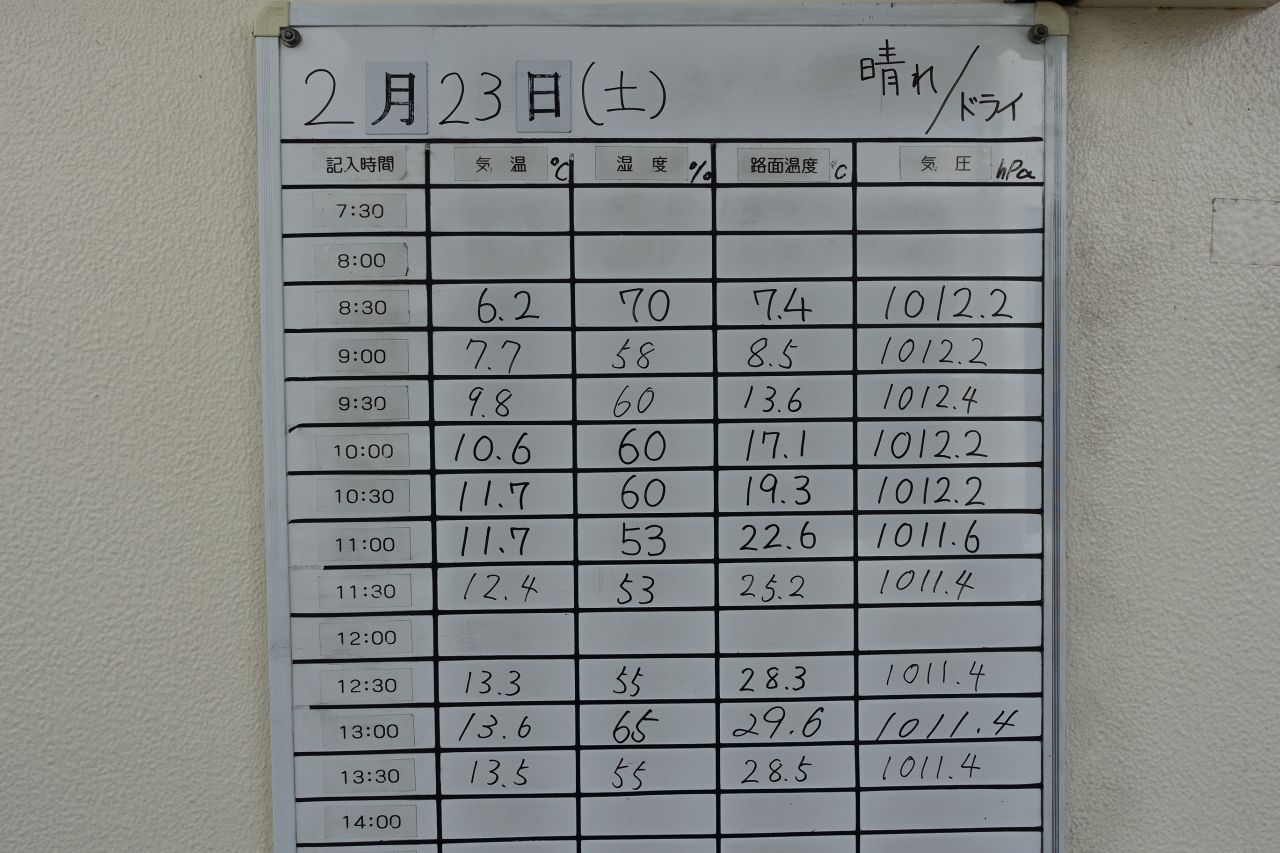 2月23日(土) 晴れ/ドライ
記入時間 気温 ℃ 湿度 % 路面温度 ℃ 気圧 hPa
7:30
8:00
8:30 6.2 70 7.4 1012.2
9:00 7.7 58 8.5 1012.2
9:30 9.8 60 13.6 1012.4
10:00 10.6 60 17.1 1012.2
10:30 11.7 60 19.3 1012.2
11:00 11.7 53 22.6 1011.6
11:30 12.4 53 25.2 1011.4
12:00
12:30 13.3 55 28.3 1011.4
13:00 13.6 65 29.6 1011.4
13:30 13.5 55 28.5 1011.4
14:00